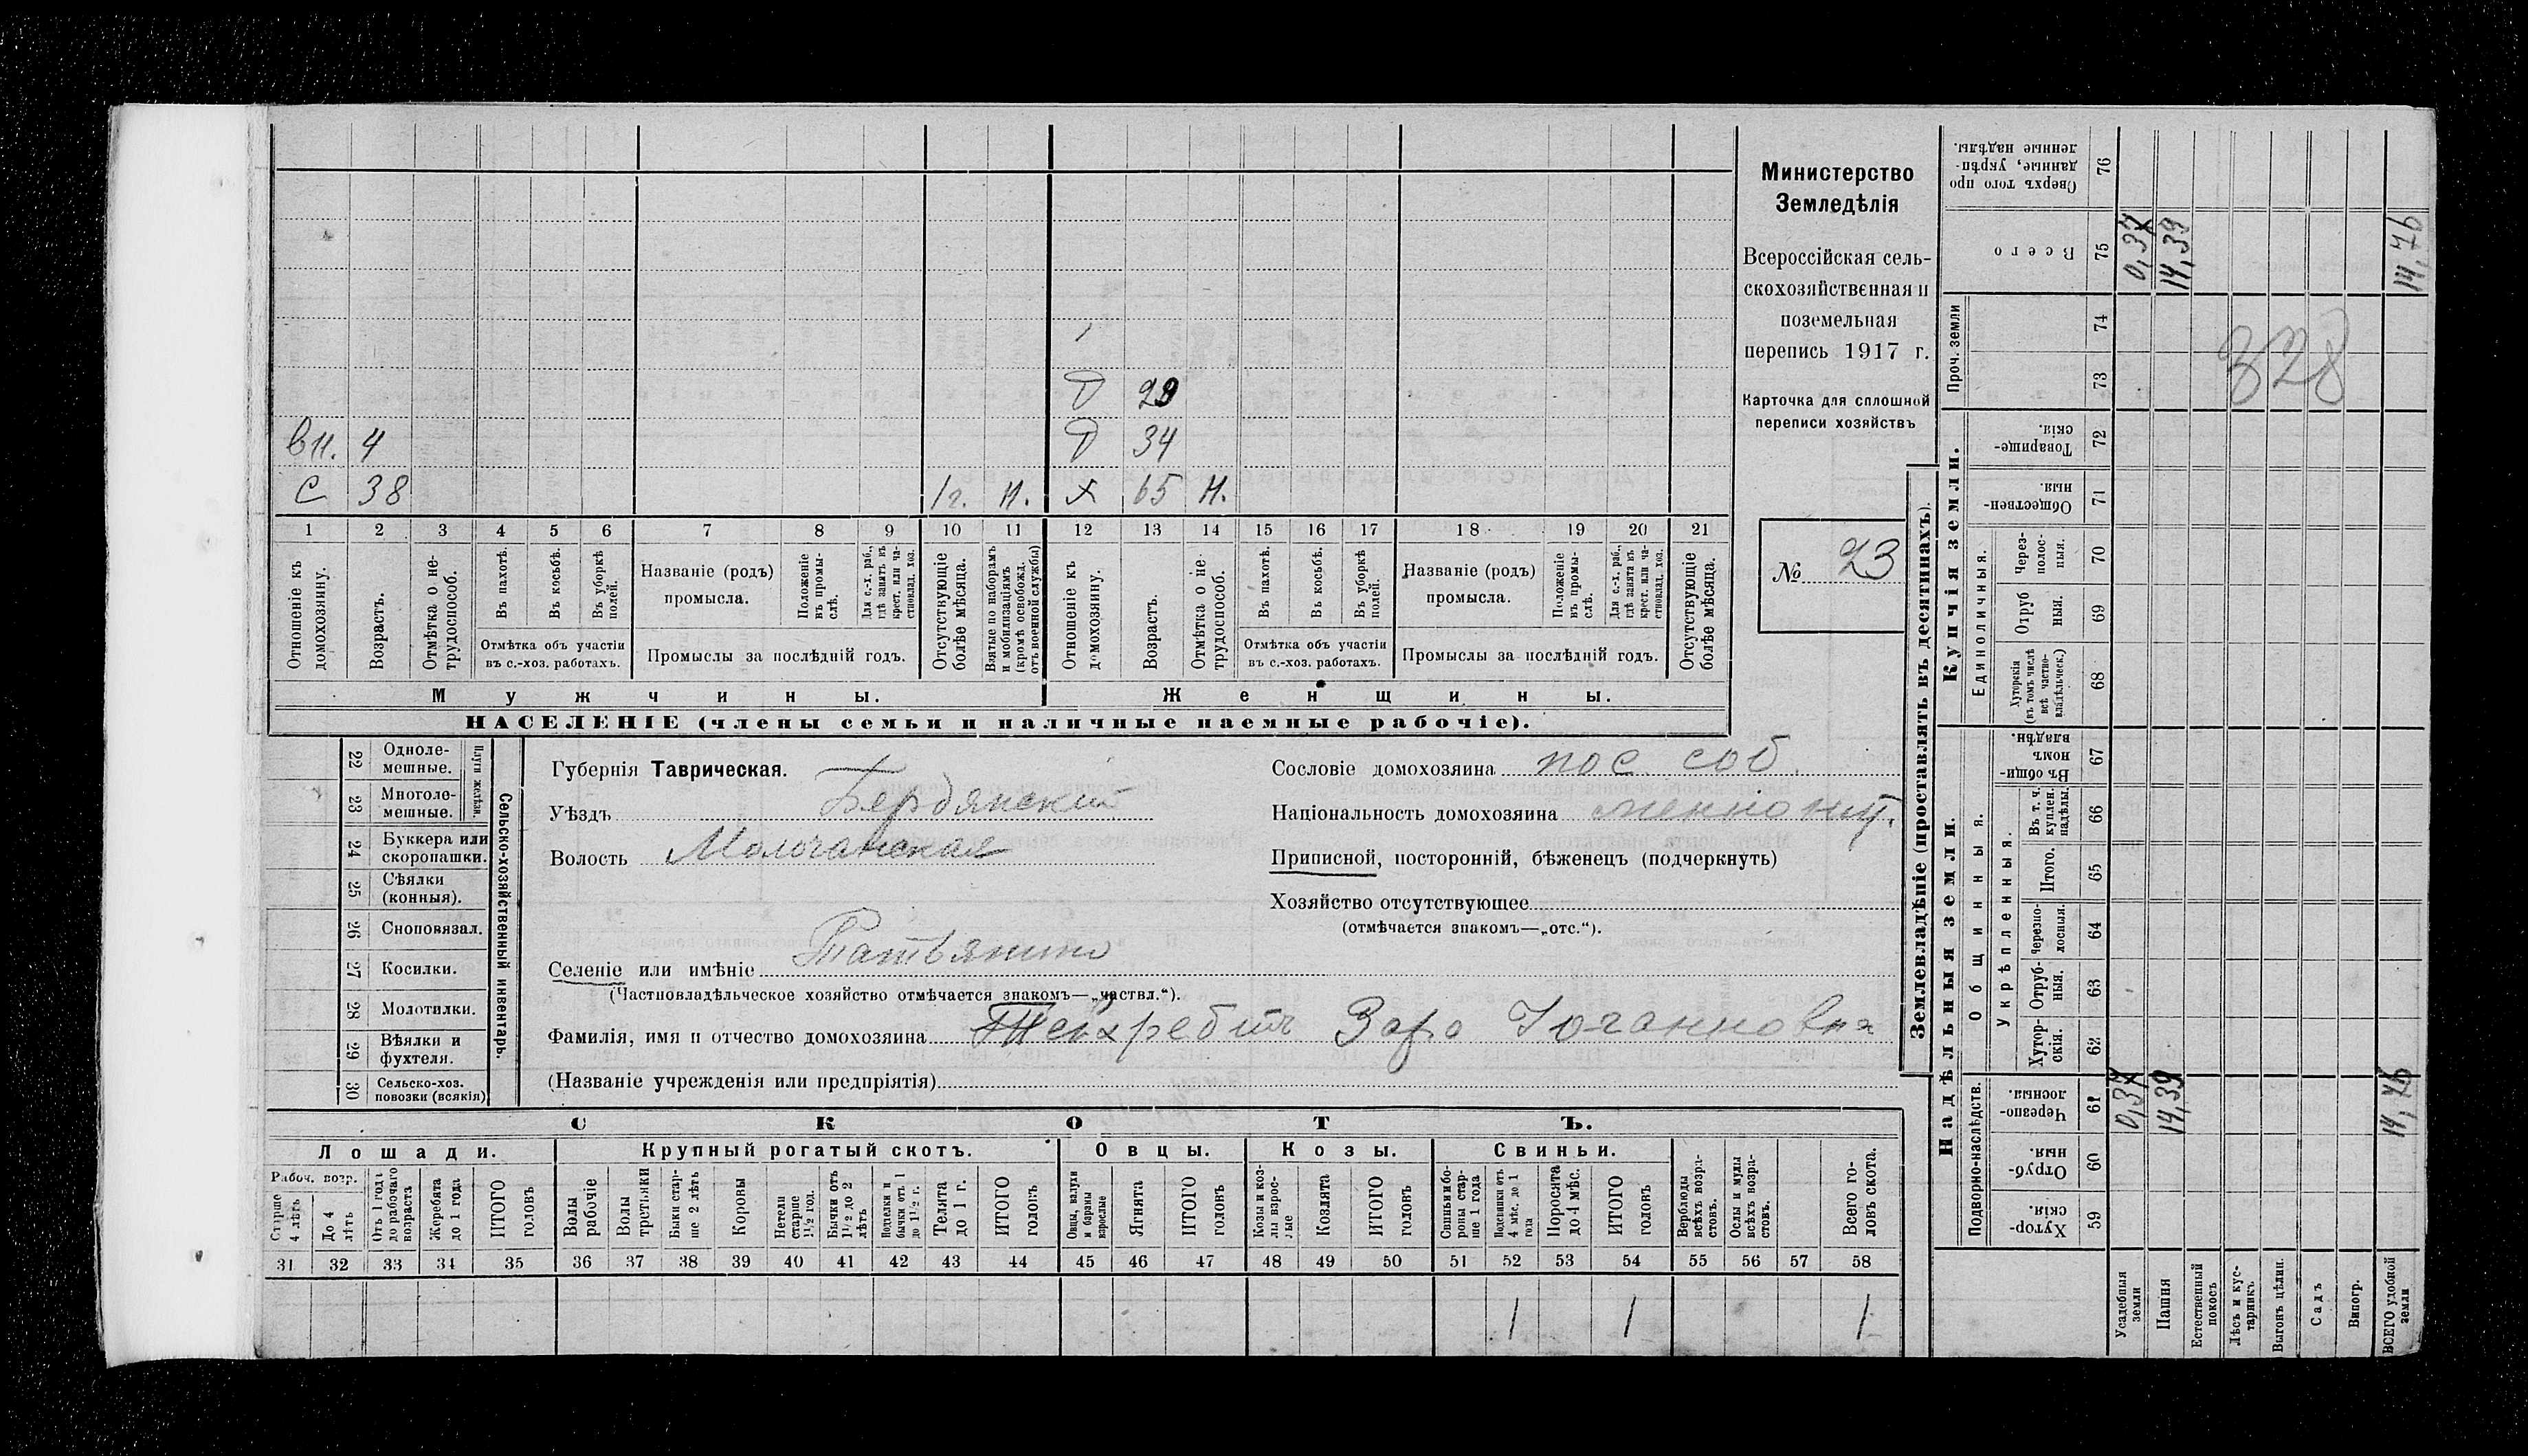 Министерство
Земледѣлія
Всероссійская сель-
скохозяйственная и
поземельная
перепись 1917 г.
Карточка для сплошной
переписи хозяйствъ
№ 23
29
вн. 4
34
С 38 1г. Н. Х 65 Н.
1 2 3 4 5 6 7 8 9 10 11 12 13 14 15 16 17 18 19 20 21
Отношеніе къ домохозяину.
Возрастъ.
Отмѣтка о не-трудоспособ.
Въ пахотѣ.
Въ косьбѣ.
Въ уборкѣ полей.
Отмѣтка объ участіи
въ с.-хоз. работахъ.
Названіе (родъ)
промысла.
Положеніе въ промы-слѣ.
Для с.-х. раб., гдѣ занятъ въ крест. или ча-стновлад. хоз.
Промыслы за послѣдній годъ.
Отсутствующіе болѣе мѣсяца.
Взятые по наборамъ и мобилизаціямъ (кромѣ освобожд. отъ военной службы)
Отношеніе къ домохозяину.
Возрастъ.
Отмѣтка о не-трудоспособ.
Въ пахотѣ.
Въ косьбѣ.
Въ уборкѣ полей.
Отмѣтка объ участіи
въ с.-хоз. работахъ.
Названіе (родъ)
промысла.
Положеніе въ промы-слѣ.
Для с.-х. раб., гдѣ занята въ крест. или ча-стновлад. хоз.
Промыслы за послѣдній годъ.
Отсутствующіе болѣе мѣсяца.
Мужчины. Женщины.
НАСЕЛЕНІЕ (члены семьи и наличные наемные рабочіе).
Сельско-хозяйственный инвентарь.
Плуги желѣзн.
22 Одноле-мешные.
23 Многоле-мешные.
24 Буккера или скоропашки.
25 Сѣялки (конныя).
26 Сноповязал.
27 Косилки.
28 Молотилки.
29 Вѣялки и фухтеля.
30 Сельско-хоз. повозки (всякія)
Губернія Таврическая.
Уѣздъ Бердянскій
Волость Молочанская
Селеніе или имѣніе
(Частновладѣльческое хозяйство отмѣчается знакомъ—„частвл.“).
Фамилія, имя и отчество домохозяина Іоганновна
(Названіе учрежденія или предпріятія)
Сословіе домохозяина пос. соб.
Національность домохозяина меннонит.
Приписной, посторонній, бѣженецъ (подчеркнуть)
Хозяйство отсутствующее
(отмѣчается знакомъ—„отс.“).
СКОТЪ.
Лошади. Крупный рогатый скотъ. Овцы. Козы. Свиньи.
Рабоч. возр.
Старше 4 лѣтъ
До 4 лѣтъ
Отъ 1 года до рабочаго возраста
Жеребята до 1 года
ИТОГО головъ
Волы рабочіе
Волы третьяки
Быки стар-ше 2 лѣтъ
Коровы
Нетели старше 1½ год.
Бычки отъ 1½ до 2 лѣтъ
Подтелки и бычки отъ 1 до 1½ г.
Телята до 1 г.
ИТОГО головъ
Овцы, валухи и бараны взрослые
Ягнята
ИТОГО головъ
Козы и коз-лы взрос-лые
Козлята
ИТОГО головъ
Свиньи и бо-ровы стар-ше 1 года
Подсвинки отъ 4 мѣс. до 1 года
Поросята до 4 мѣс.
ИТОГО головъ
Верблюды всѣхъ возра-стовъ.
Ослы и мулы всѣхъ возра-стовъ.
Всего го-ловъ скота.
31 32 33 34 35 36 37 38 39 40 41 42 43 44 45 46 47 48 49 50 51 52 53 54 55 56 57 58
1 1 1
Землевладѣніе (проставлять въ десятинахъ).
Надѣльныя земли. Купчія земли. Проч. земли
Подворно-наслѣдств.
Общинныя.
Укрѣпленныя.
Единоличныя.
Хутор-скія. 59
Отруб-ныя. 60
Черезпо-лосныя. 61
Хутор-скія. 62
Отруб-ныя. 63
Черезпо-лосныя. 64
Итого. 65
Въ т. ч. куплен. надѣлы. 66
Въ общи-номъ владѣн. 67
Хуторскія (въ томъ числѣ всѣ частно-владѣльческ.) 68
Отруб ныя. 69
Через-полос-ныя. 70
Обществен-ныя. 71
Товарище-скія. 72
73
74
Всего 75
Сверхъ того про данные, укрѣп-ленные надѣлы. 76
Усадебныя земли 0,37 0,37
Пашня 14,39 14,39
Естественный покосъ
Лѣсъ и кус-тарникъ
Выгонъ цѣлин.
Садъ
Виногр.
ВСЕГО удобной земли 14,76 14,76
328